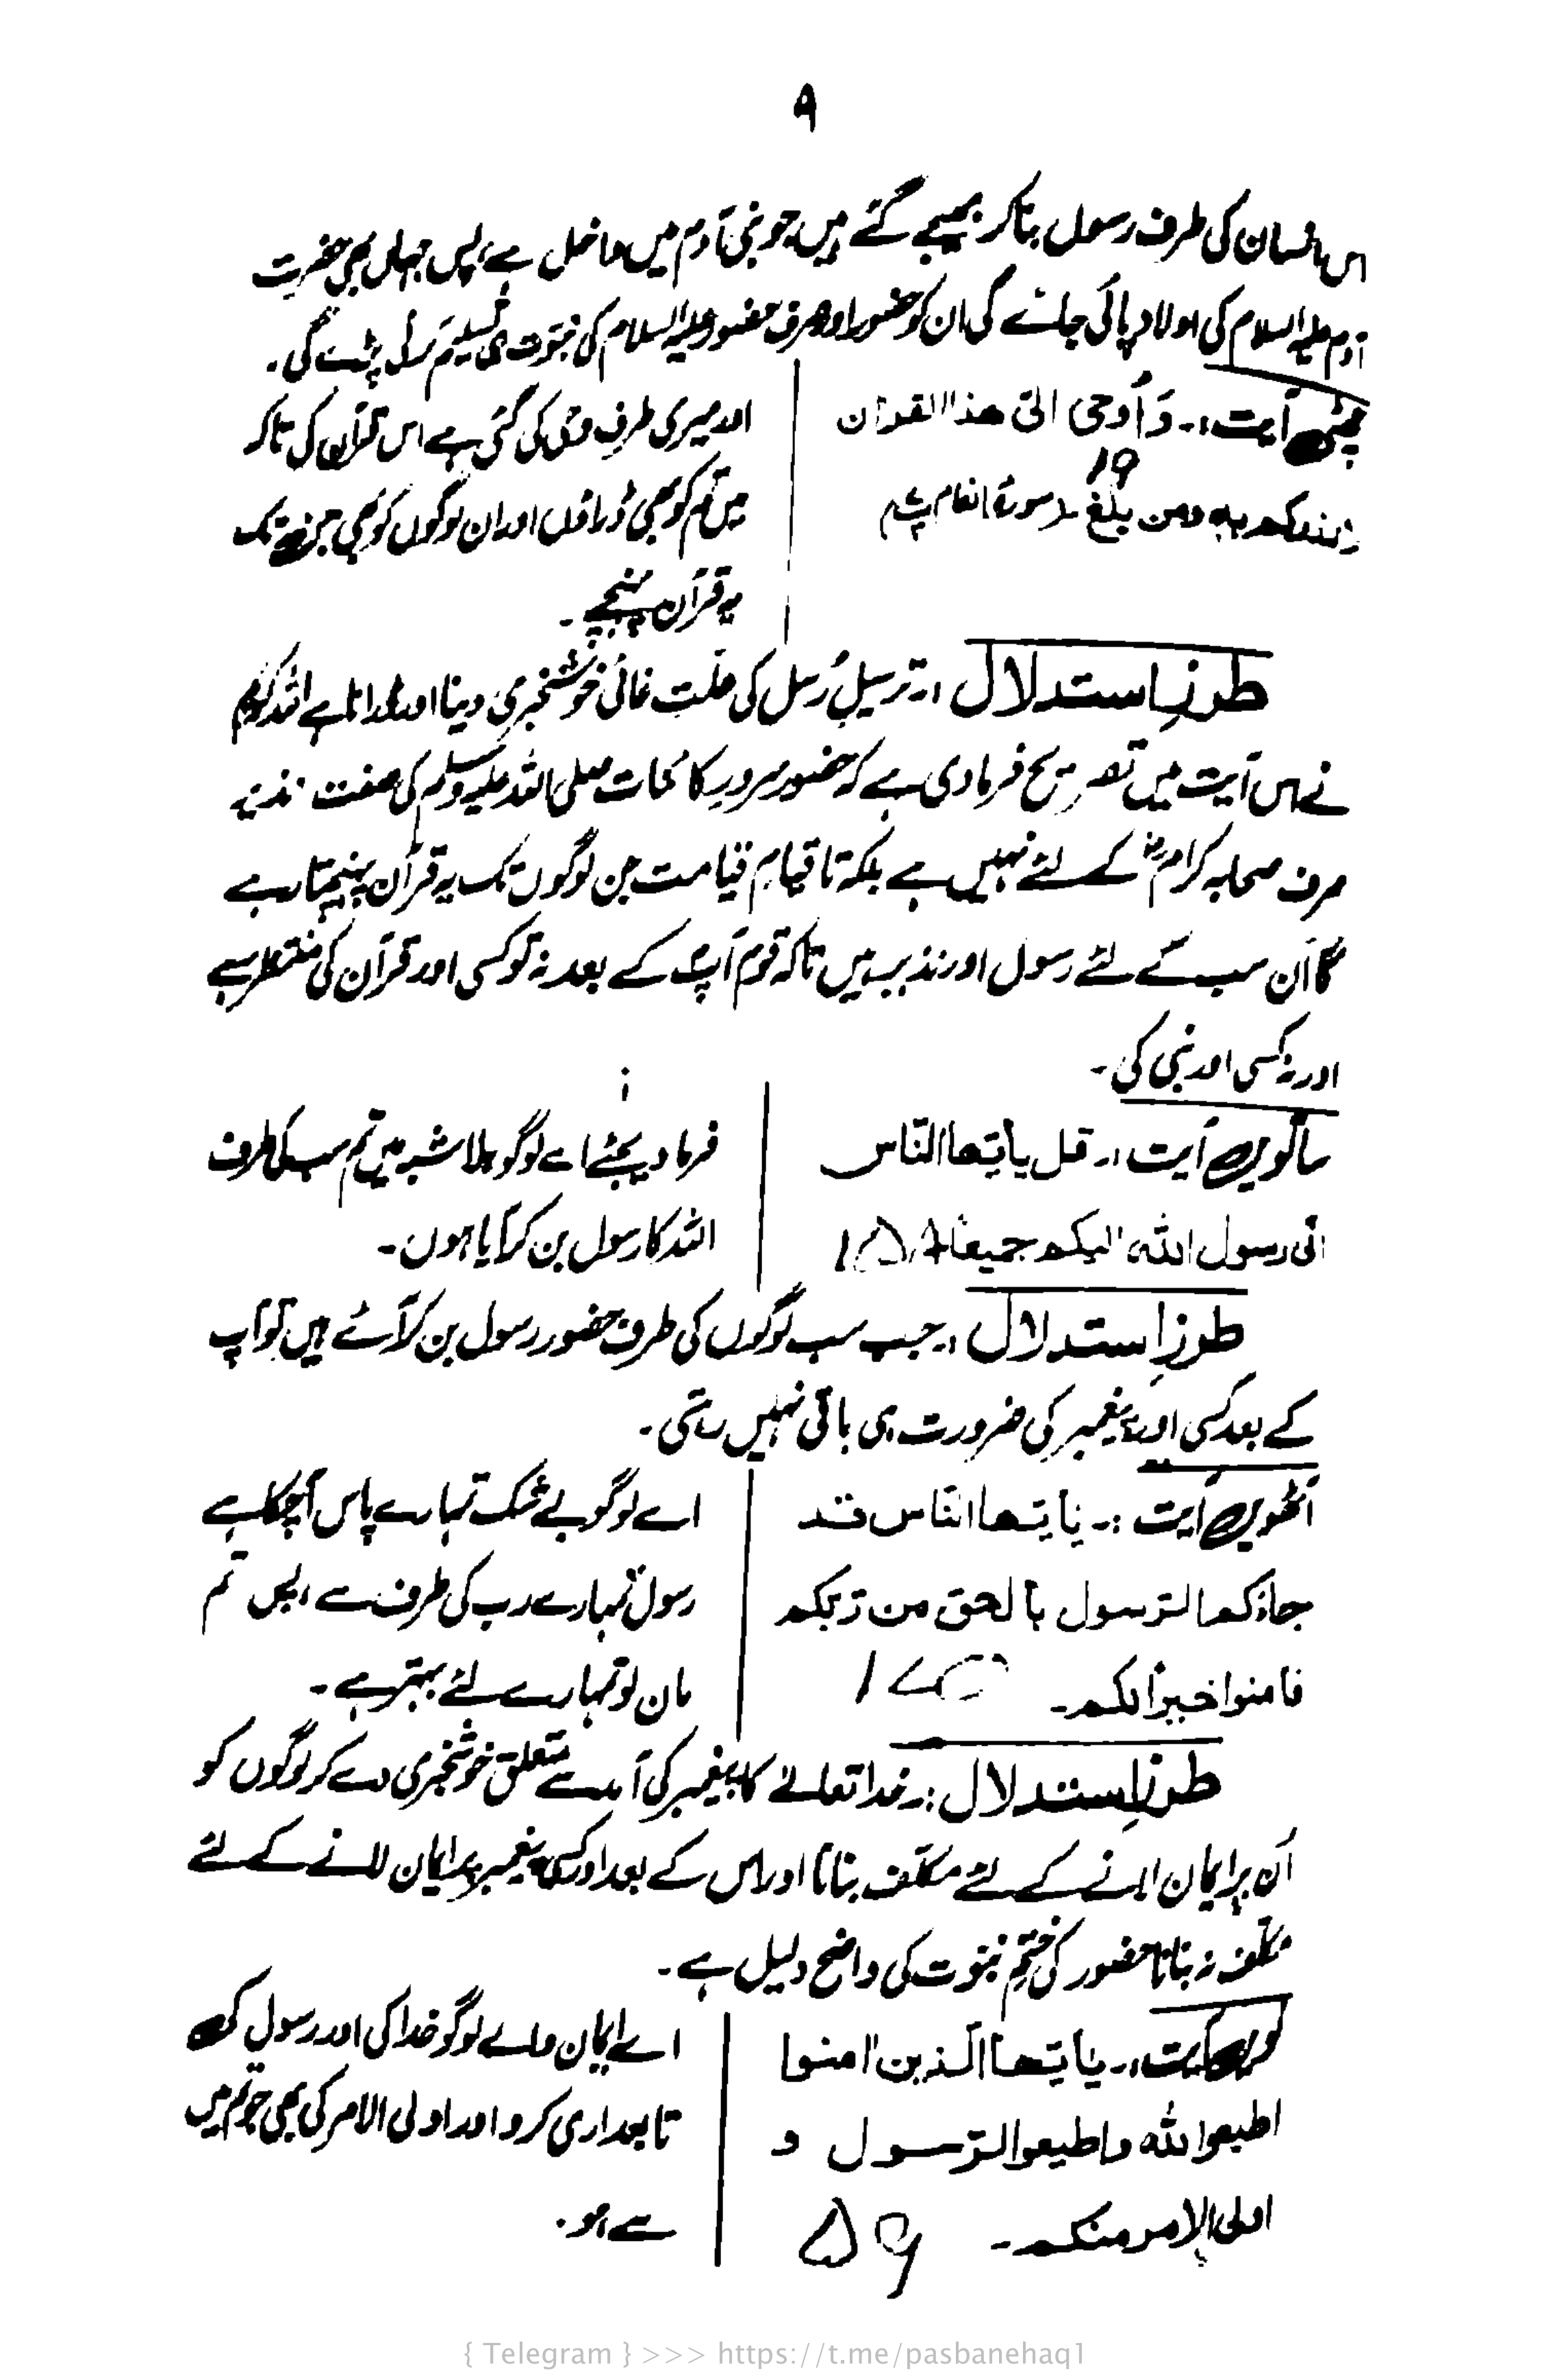 ۹
اس انسان کی طرف رسول بنا کر بھیجے گئے ہیں جو بنی آدم میں داخل ہے، پس جہاں بھی حضرت
آدم علیہ السلام کی اولاد پائی جائے گی ان کو حضور اور صرف حضور علیہ السلام کی نبوت ہی تسلیم کرنی پڑے گی۔
چھٹی آیت :۔ وَأُوحی الیّ ھذا القرآن
۱۹
لِانذرکم بہ ومن بلغ (سورۃ انعام پ
اور میری طرف وحی کی گئی ہے اس قرآن کی تاکہ
میں تم کو بھی ڈراؤں اور ان لوگوں کو بھی جن تک
یہ قرآن پہنچے۔
طرزِ استدلال :۔ ترسیلِ رُسل کی علّتِ غائی خوشخبری دینا اور ڈرانا ہے اللہ کریم
نے اس آیت میں تصریح فرمادی ہے کہ حضور سرورِ کائنات صلی اللہ علیہ وسلم کی صفت نذیر
صرف صحابہ کرامؓ کے لئے نہیں ہے بلکہ تا قیامِ قیامت جن لوگوں تک یہ قرآن پہنچتا رہے
گا اُن سب کے لئے رسول اور نذیر ہیں تاکہ قوم آپ کے بعد نہ تو کسی اور قرآن کی منتظر رہے
اور نہ کسی اور نبی کی۔
ساتویں آیت :۔ قل یایّھا النّاس
انی رسول اللہ الیکم جمیعًا ۱۵۸
فرما دیجئے اے لوگو بلا شبہ میں تم سب کی طرف
اللہ کا رسول بن کر آیا ہوں۔
طرزِ استدلال :۔ جب سب لوگوں کی طرف حضور رسول بن کر آئے ہیں تو آپ
کے بعد کسی اور پیغمبر کی ضرورت ہی باقی نہیں رہتی۔
آٹھویں آیت :۔ یٰایّھا النّاس قد
جاءکم الرّسول بالحق من رّبکم
فامنوا خیراً لکم۔ ۱۷۰
اے لوگو بے شک تمہارے پاس آچکا ہے
رسول تمہارے رب کی طرف سے، پس تم
مان لو تمہارے لئے بہتر ہے۔
طرزِ استدلال :۔ خدا تعالےٰ کا پیغمبر کی آمد سے متعلق خوشخبری دے کر لوگوں کو
اُن پر ایمان لانے کے لئے مکلّف بنانا اور اس کے بعد اور کسی پیغمبر پر ایمان لانے کے لئے
مکلّف نہ بنانا حضور کی ختمِ نبوّت کی واضح دلیل ہے۔
نویں آیت :۔ یٰایّھا الّذین اٰمنوا
اطیعوا اللہ واطیعوا الرّسول و
اولی الامر منکم۔ ۵۹
اے ایمان والے لوگو خدا کی اور رسول کی
تابعداری کرو اور اولی الامر کی بھی جو تم میں
سے ہو۔
{ Telegram } >>> https://t.me/pasbanehaq1